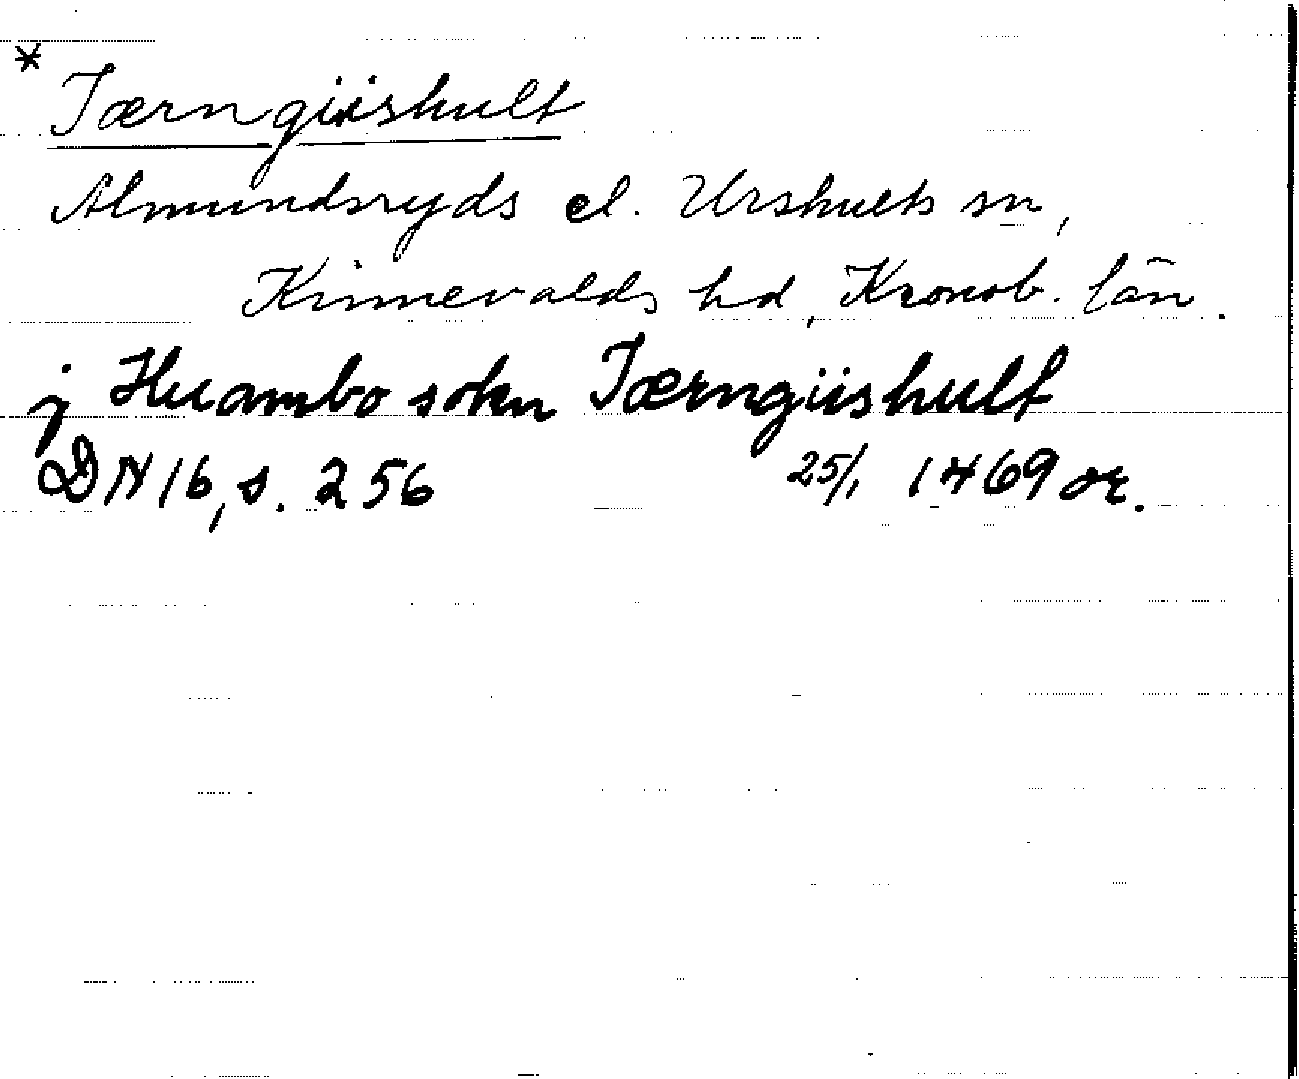 * Jærngiishult
Almundsryds el. Urshults sn,
Kinnevalds hd, Kronob. län.
j Huambo sokn Jærngiishult
DN 16, s. 256 25/1 1469 or.